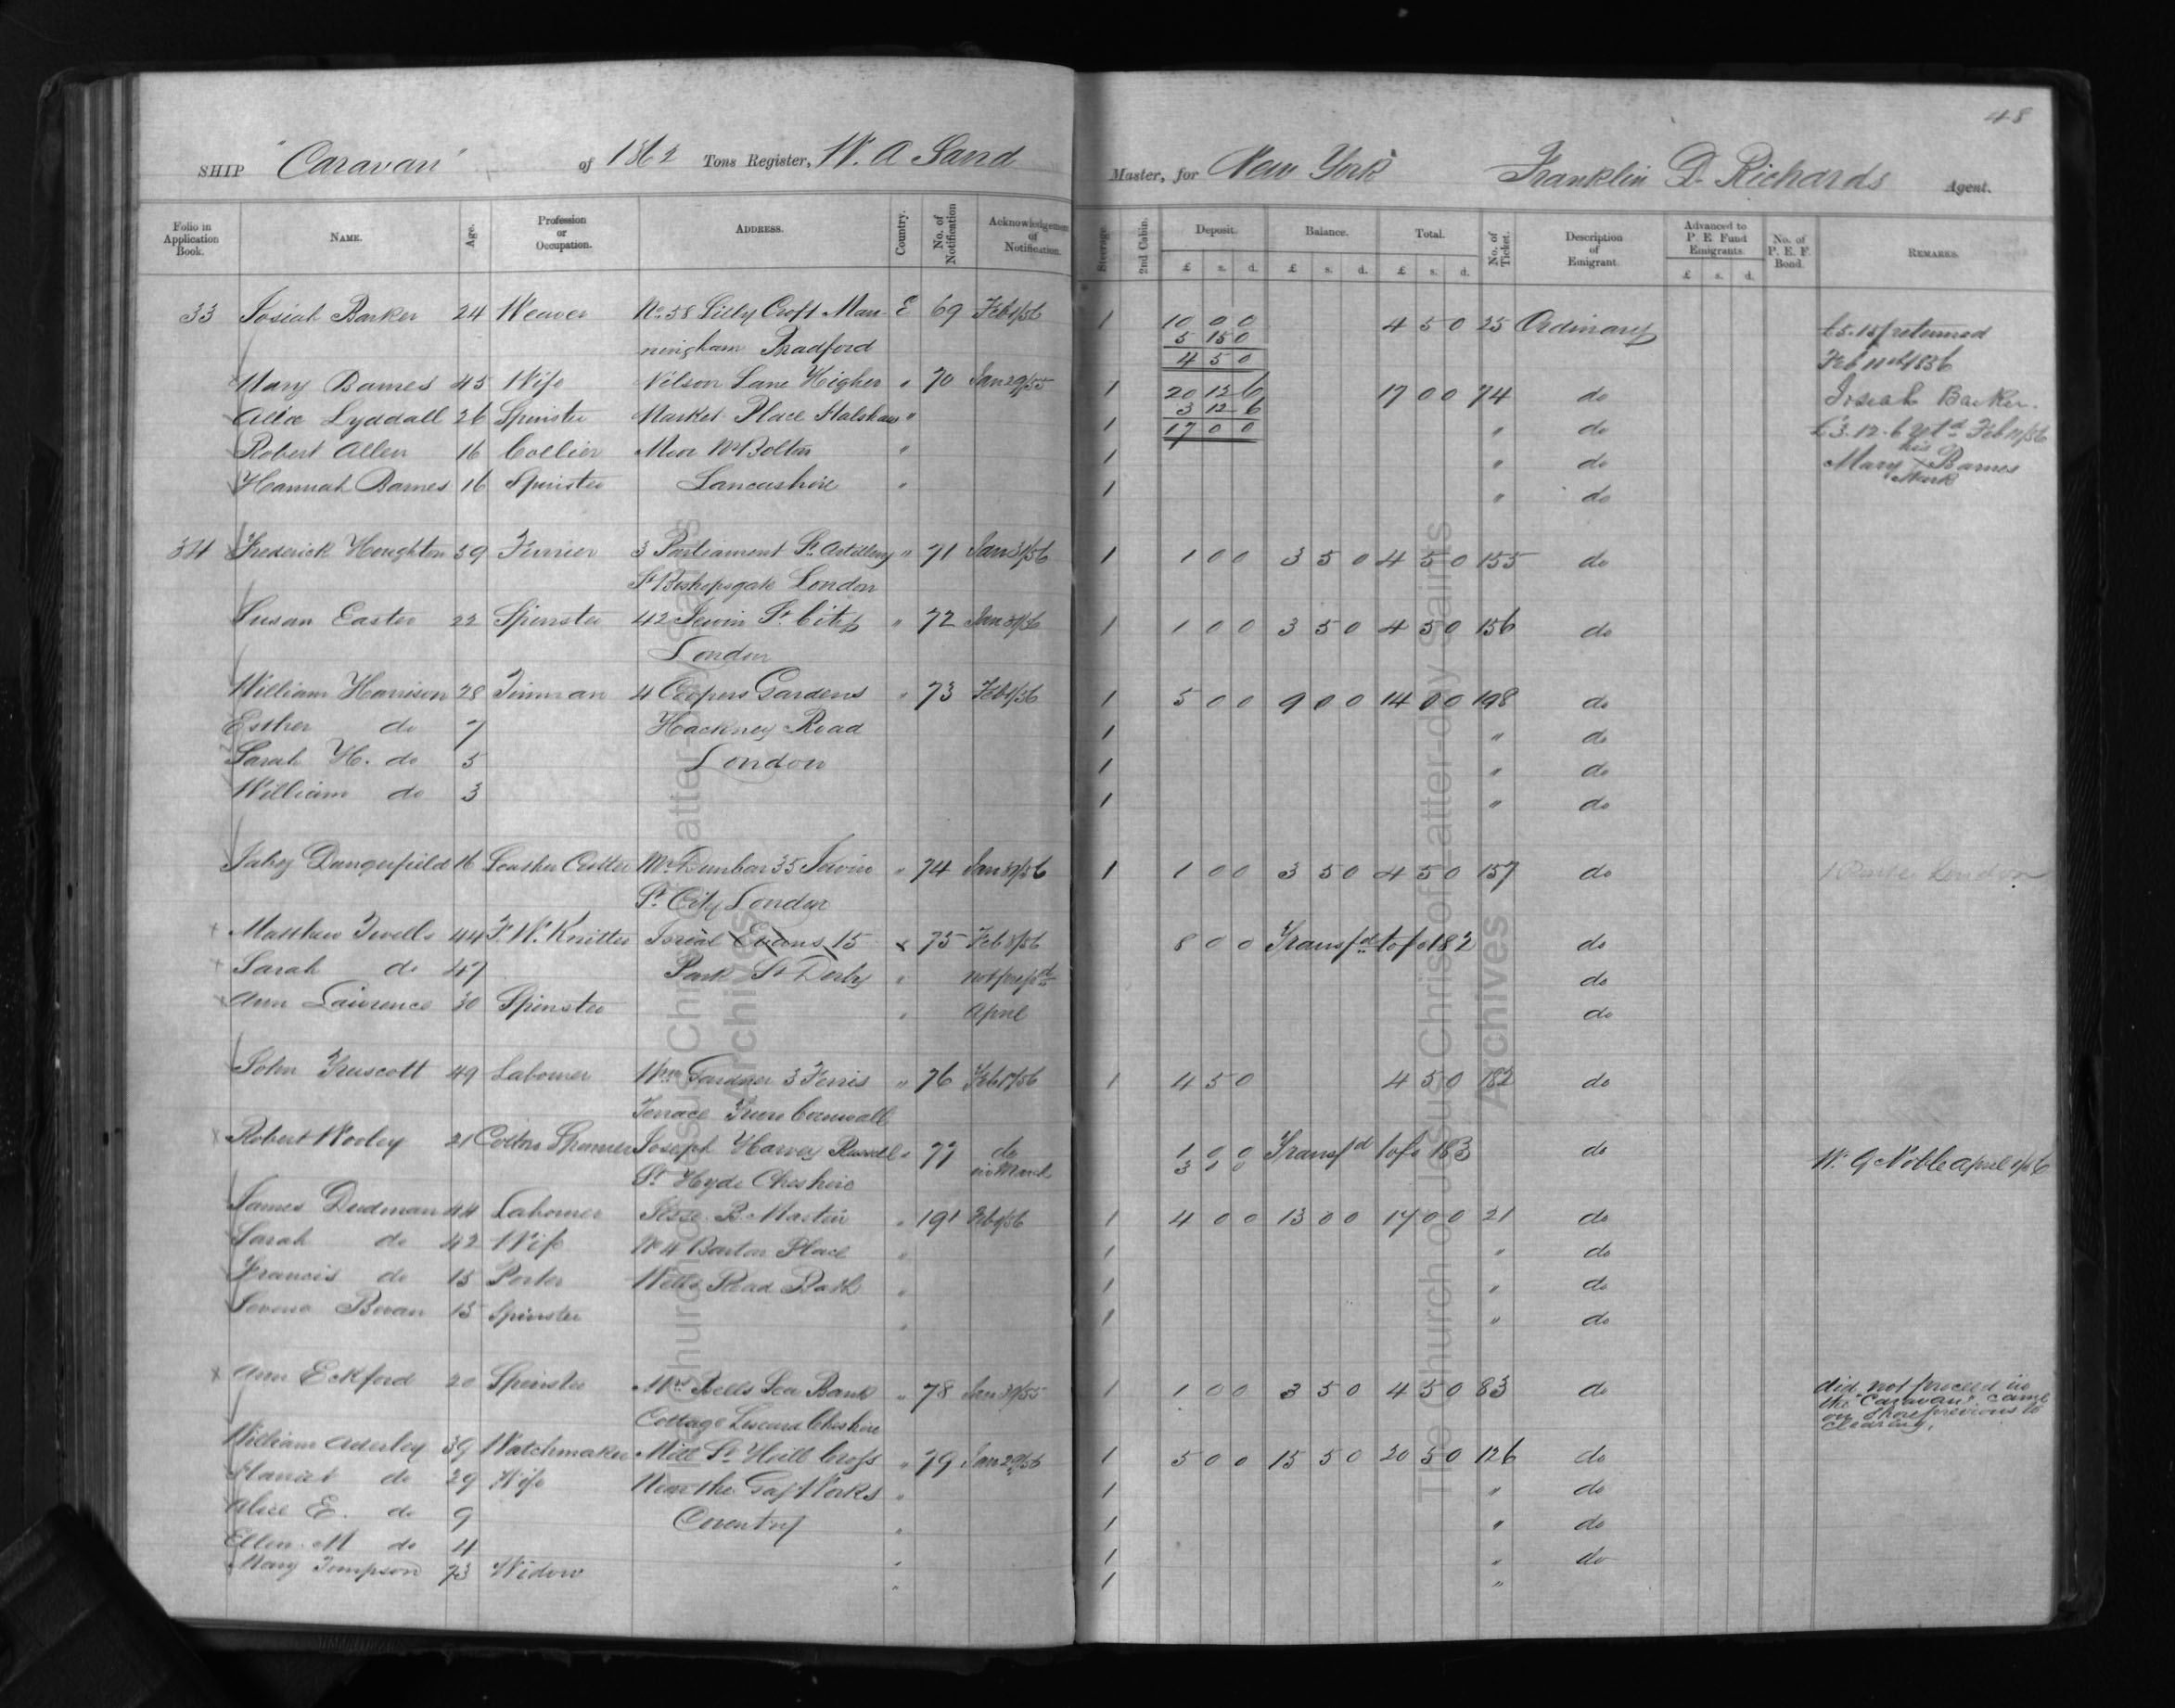 48
SHIP "Caravan" of 1362 Tons Register, W. A Sand Master, for New York Franklin D. Richards Agent.
Folio in Application Book. NAME. Age. Profession or Occupation. ADDRESS. Country. No. of Notification Acknowledgement of Notification. Steerage. 2nd Cabin. Deposit. £ s. d. Balance. £ s. d. Total. £ s. d. No. of Ticket. Description of Emigrant. Advanced to P. E Fund Emigrants. £ s. d. No. of P. E. F. Bond. REMARKS.
33 Josiah Barker 24 Weaver No. 58 Lilly Croft Man- E 69 Feb 1/56 1 10 0 0 4 5 0 25 Ordinary £5.15/ returned
ningham Bradford 5 15 0 Feb 11 1856
4 5 0
Mary Barnes 45 Wife Nelson Lane Higher " 70 Jan 29/55 1 20 12 6 17 0 0 74 do Josiah Barker.
Alice Lyddall 26 Spinster Market Place Halshaw " 3 12 6
1 17 0 0 " do £3.12.6 Feb 11/56
Robert Allen 16 Collier Moor Nr Bolton " 1 " do his
Mary X Barnes
Hannah Barnes 16 Spinster Lancashire " 1 " do Mark
34 Frederick Houghton 39 Furrier 3 Parliament St. Artillery " 71 Jan 31/56 1 1 0 0 3 5 0 4 5 0 155 do
St Bishopsgate London
Susan Easter 22 Spinster 42 Jewin St. City " 72 Jan 31/56 1 1 0 0 3 5 0 4 5 0 156 do
London
William Harrison 28 Tinman 4 Coopers Gardens " 73 Feb 1/56 1 5 0 0 9 0 0 14 0 0 198 do
Esther do 7 Hackney Road 1 " do
Sarah H. do 5 London 1 " do
William do 3 1 " do
Jabez Dangerfield 16 Leather Cutter Mr Dunbar 35 Jewin " 74 Jan 31/56 1 1 0 0 3 5 0 4 5 0 157 do London
St. City London
x Matthew Twells 44 F. W. Knitter Josiah Evans 15 x 75 Feb 5/56 8 0 0 Transfd to fo 182 do
x Sarah do 47 Park St Derby " not prepd do
x Ann Lawrence 30 Spinster " April do
John Truscott 49 Labourer Wm Gardner 3 Ferris " 76 Feb 1/56 1 4 5 0 4 5 0 182 do
Terrace Truro Cornwall
x Robert Wooley 21 Joseph Harvey Russell " 77 do 1 0 0 Transfd to fo 183 do W. G Noble April 1/56
St Hyde Cheshire in March 3 1 0
James Dudman 44 Labourer Jesse B. Martin " 191 Feb 9/56 1 4 0 0 13 0 0 17 0 0 21 do
Sarah do 42 Wife No 4 Barton Place " 1 " do
Francis do 15 Porter Wells Road Bath " 1 " do
Bevan 15 Spinster " 1 " do
x Ann Eckford 20 Spinster Mrs Bells Sea Bank " 78 Jan 31/55 1 1 0 0 3 5 0 4 5 0 83 do did not proceed in
the "Caravan" came
Cottage Liscard Cheshire on shore previous to
clearing.
William Aderley 39 Watchmaker Mill St Hill Cross " 79 Jan 29/56 1 5 0 0 15 5 0 20 5 0 126 do
Harriet do 29 Wife Near the Gas Works " 1 " do
Alice E. do 9 Coventry " 1 " do
Ellen M do 4 " 1 " do
Mary Timpson 73 Widow " 1 "
The Church of Jesus Christ of Latter-day Saints
Archives
The Church of Jesus Christ of Latter-day Saints
Archives